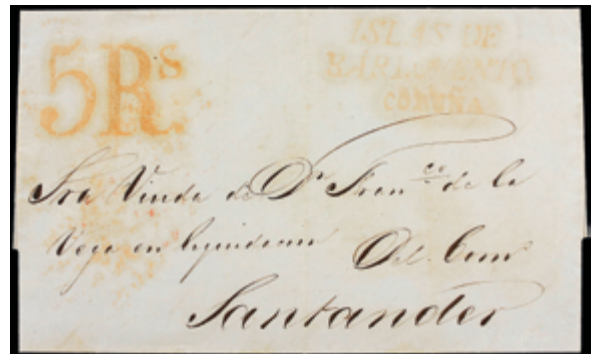 5 Rs
ISLAS DE
BARLOVENTO
CORUÑA
Sra Viuda de Dn Franco de la
Vega en liquidacion Del Como
Santander